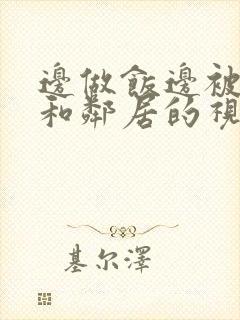 邊做飯邊被
和鄰居的視
基尔澤